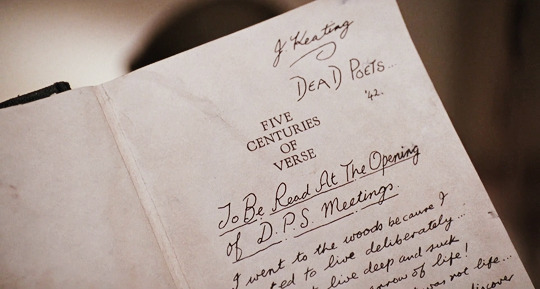 J. Keating
DEAD POETS...
'42.
FIVE
CENTURIES
OF
VERSE
To Be Read At The Opening
of D.P.S. Meetings.
I went to the woods because I
ted to live deliberately...
to live deep and suck
arrow of life!
was not life...
discover